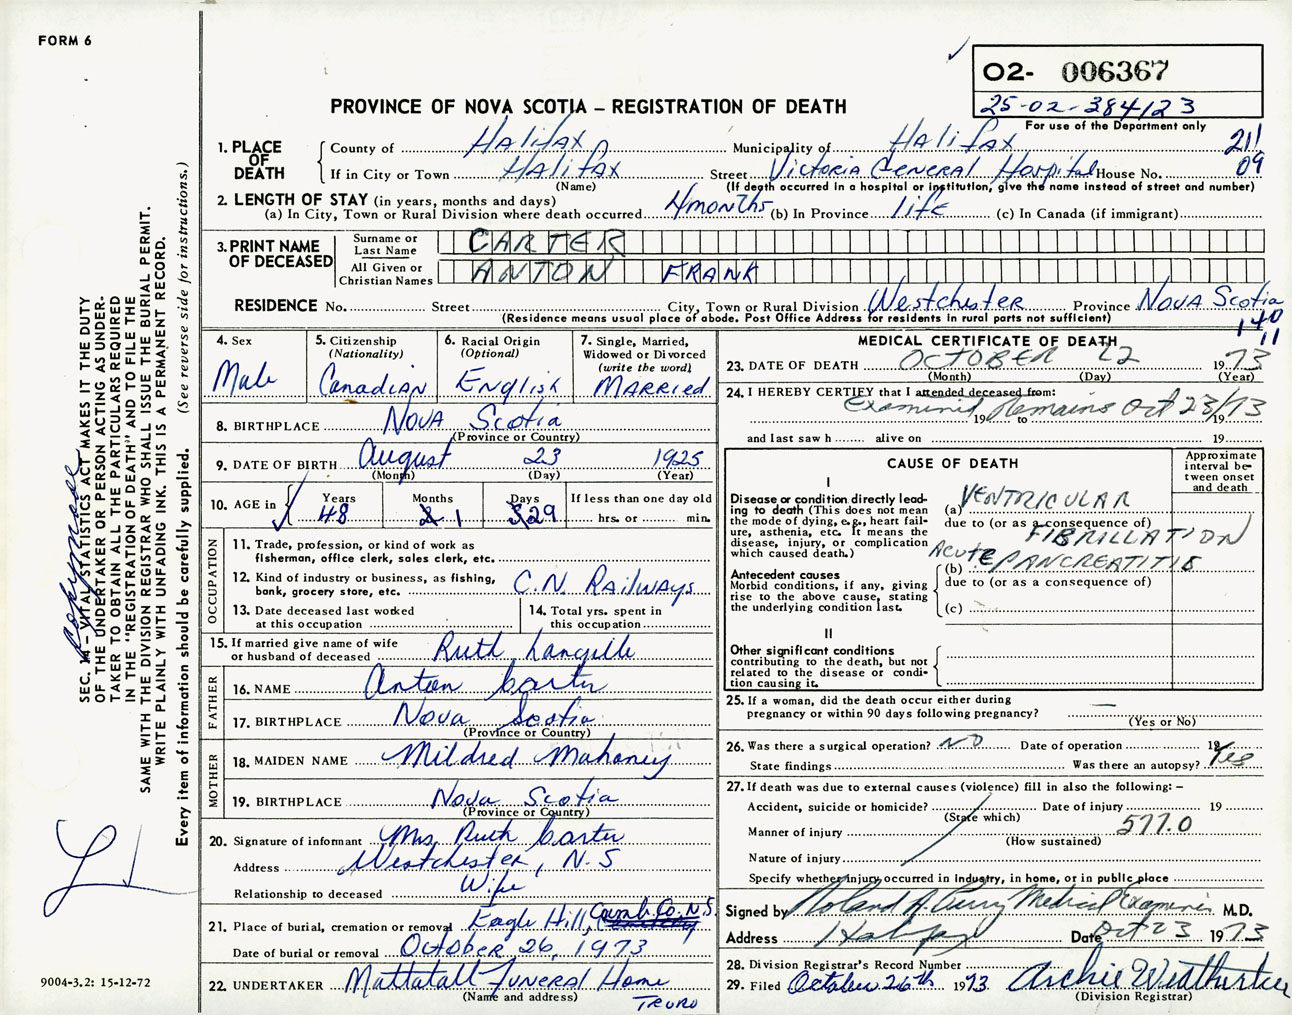 FORM 6
O2- 006367
25-02-384123
For use of the Department only
PROVINCE OF NOVA SCOTIA – REGISTRATION OF DEATH
211
09
1. PLACE OF DEATH
County of Halifax Municipality of Halifax
If in City or Town Halifax Street Victoria General Hospital House No.
(Name) (If death occurred in a hospital or institution, give the name instead of street and number)
2. LENGTH OF STAY (in years, months and days)
(a) In City, Town or Rural Division where death occurred 4 months (b) In Province life (c) In Canada (if immigrant)
3. PRINT NAME OF DECEASED
Surname or Last Name CARTER
All Given or Christian Names ANTON FRANK
RESIDENCE No. Street City, Town or Rural Division Westchester Province Nova Scotia
(Residence means usual place of abode. Post Office Address for residents in rural parts not sufficient)
140
11
4. Sex Male
5. Citizenship (Nationality) Canadian
6. Racial Origin (Optional) English
7. Single, Married, Widowed or Divorced (write the word) Married
8. BIRTHPLACE Nova Scotia
(Province or Country)
9. DATE OF BIRTH August 23 1925
(Month) (Day) (Year)
10. AGE in Years 48 Months 2 1 Days 3 29 If less than one day old hrs. or min.
OCCUPATION
11. Trade, profession, or kind of work as fisherman, office clerk, sales clerk, etc.
12. Kind of industry or business, as fishing, bank, grocery store, etc. C.N. Railways
13. Date deceased last worked at this occupation
14. Total yrs. spent in this occupation
15. If married give name of wife or husband of deceased Ruth Langille
FATHER
16. NAME Anton Carter
17. BIRTHPLACE Nova Scotia
(Province or Country)
MOTHER
18. MAIDEN NAME Mildred Mahoney
19. BIRTHPLACE Nova Scotia
(Province or Country)
20. Signature of informant Mrs. Ruth Carter
Address Westchester, N.S
Relationship to deceased Wife
21. Place of burial, cremation or removal Eagle Hill, Cumb. Co. N.S.
Date of burial or removal October 26, 1973
22. UNDERTAKER Mattatall Funeral Home
(Name and address) Truro
MEDICAL CERTIFICATE OF DEATH
23. DATE OF DEATH OCTOBER 22 1973
(Month) (Day) (Year)
24. I HEREBY CERTIFY that I attended deceased from:
Examined Remains Oct 23/73
19 to 19
and last saw h alive on 19
CAUSE OF DEATH
Approximate interval between onset and death
I
Disease or condition directly leading to death (This does not mean the mode of dying, e.g., heart failure, asthenia, etc. It means the disease, injury, or complication which caused death.)
(a) VENTRICULAR
due to (or as a consequence of)
FIBRILLATION
Antecedent causes
Morbid conditions, if any, giving rise to the above cause, stating the underlying condition last.
(b) Acute PANCREATITIS
due to (or as a consequence of)
(c)
II
Other significant conditions contributing to the death, but not related to the disease or condition causing it.
25. If a woman, did the death occur either during pregnancy or within 90 days following pregnancy? —
(Yes or No)
26. Was there a surgical operation? NO Date of operation 19
State findings Was there an autopsy? Yes
27. If death was due to external causes (violence) fill in also the following: –
Accident, suicide or homicide? Date of injury 19
(State which)
577.0
Manner of injury
(How sustained)
Nature of injury
Specify whether injury occurred in industry, in home, or in public place
Signed by Roland A Perry Medical Examiner M.D.
Address Halifax Date Oct 23 1973
28. Division Registrar's Record Number
29. Filed October 26th 1973 Archie Weatherbee
(Division Registrar)
SEC. 14 – VITAL STATISTICS ACT MAKES IT THE DUTY
OF THE UNDERTAKER OR PERSON ACTING AS UNDER-
TAKER TO OBTAIN ALL THE PARTICULARS REQUIRED
IN THE "REGISTRATION OF DEATH" AND TO FILE THE
SAME WITH THE DIVISION REGISTRAR WHO SHALL ISSUE THE BURIAL PERMIT.
WRITE PLAINLY WITH UNFADING INK. THIS IS A PERMANENT RECORD.
Every item of information should be carefully supplied. (See reverse side for instructions.)
9004-3.2: 15-12-72